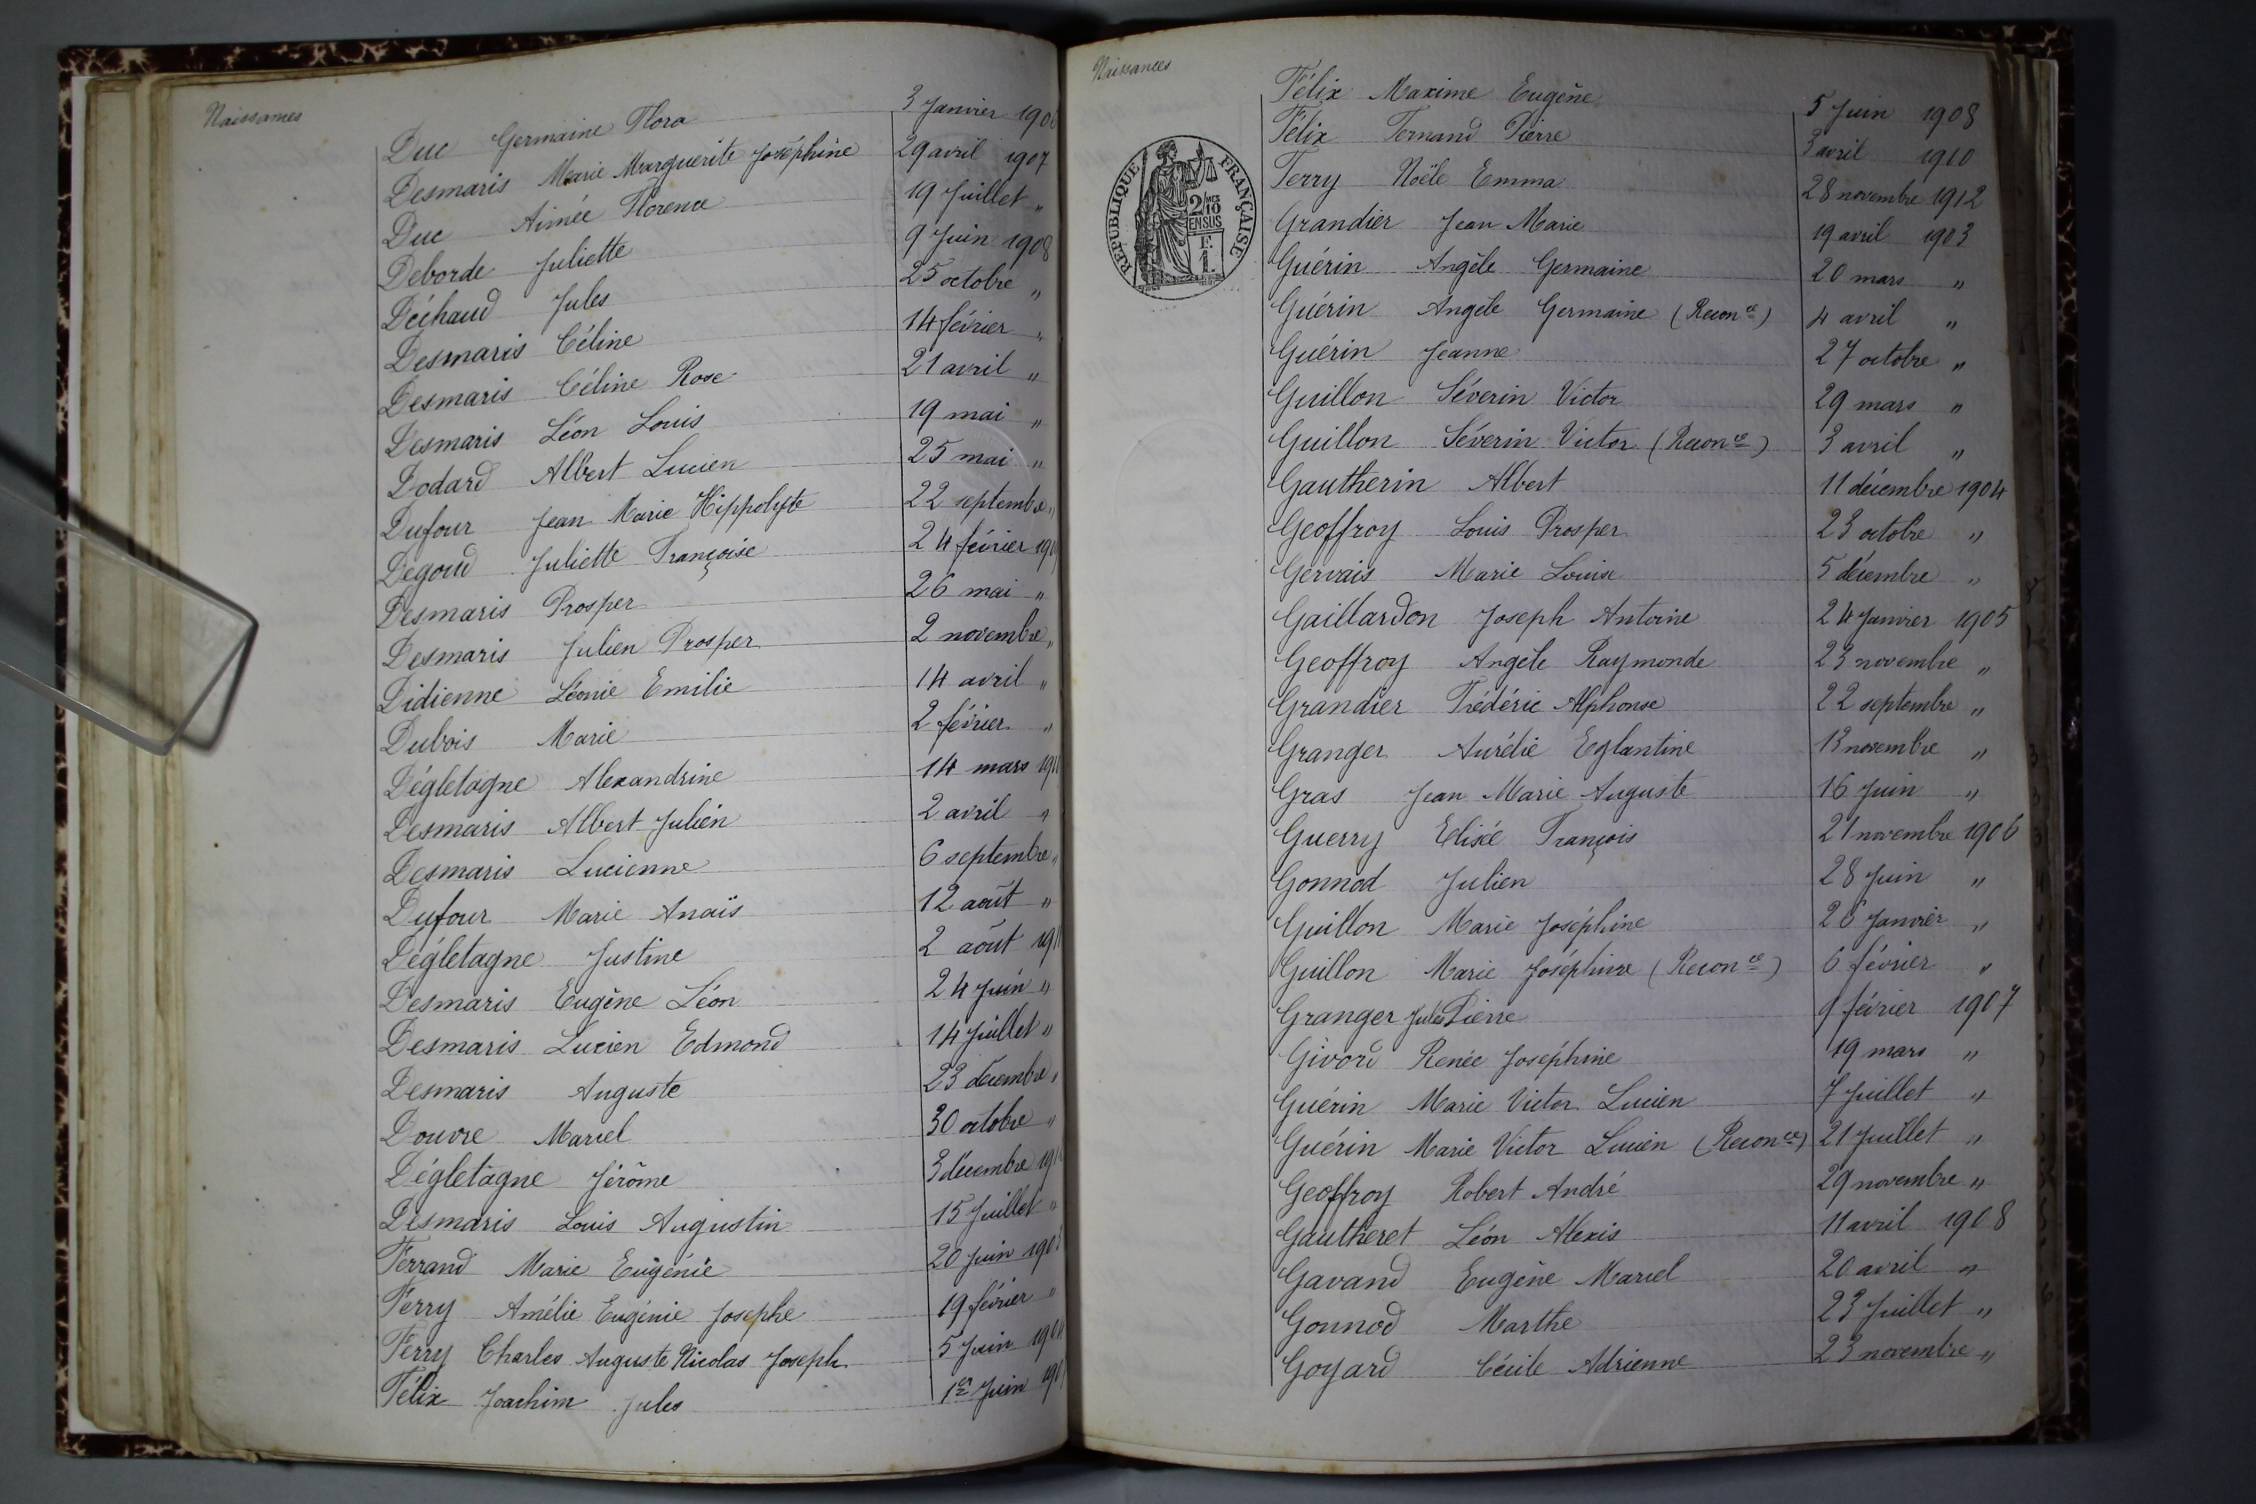 Naissances
Duc Germaine Flora 3 Janvier
Desmaris Marie Marguerite Joséphine 29 avril 1907
Duc Aimée Florence 19 Juillet "
Deborde Juliette 9 Juin 1908
Déchaud Jules 25 octobre "
Desmaris Céline 14 février "
Desmaris Céline Rose 21 avril "
Desmaris Léon Louis 19 mai "
Dodard Albert Lucien 25 mai "
Dufour Jean Marie Hippolyte 22 septembre "
Degoud Juliette Françoise 24 février
Desmaris Prosper 26 mai "
Desmaris Julien Prosper 2 novembre "
Didienne Léonie Emilie 14 avril "
Dubois Marie 2 février "
Dégletagne Alexandrine 14 mars
Desmaris Albert Julien 2 avril "
Desmaris Lucienne 6 septembre "
Dufour Marie Anaïs 12 août "
Dégletagne Justine 2 août
Desmaris Eugène Léon 24 Juin "
Desmaris Lucien Edmond 14 Juillet "
Desmaris Auguste 23 décembre "
Douvre Marcel 30 octobre "
Dégletagne Jérôme 3 décembre
Desmaris Louis Augustin 15 Juillet "
Ferrand Marie Eugénie 20 Juin
Ferry Amélie Eugénie Josephe 19 février "
Ferry Charles Auguste Nicolas Joseph 5 Juin
Félix Joachim Jules 1er Juin
Naissances
RÉPUBLIQUE FRANÇAISE
2/10
EN SUS
Félix Maxime Eugène 5 Juin 1908
Félix Fernand Pierre 3 avril 1910
Ferry Noële Emma 28 novembre 1912
Grandier Jean Marie 19 avril 1903
Guérin Angèle Germaine 20 mars "
Guérin Angèle Germaine (Reconce) 4 avril "
Guérin Jeanne 27 octobre "
Guillon Séverin Victor 29 mars "
Guillon Séverin Victor (Reconce) 3 avril "
Gautherin Albert 11 décembre 1904
Geoffroy Louis Prosper 23 octobre "
Gervais Marie Louise 5 décembre "
Gaillardon Joseph Antoine 24 Janvier 1905
Geoffroy Angèle Raymonde 23 novembre "
Grandier Frédéric Alphonse 22 septembre "
Granger Aurélie Eglantine 13 novembre "
Gras Jean Marie Auguste 16 Juin "
Guerry Elisée François 21 novembre 1906
Gonnod Julien 28 Juin "
Guillon Marie Joséphine 26 Janvier "
Guillon Marie Joséphine (Reconce) 6 février "
Granger Jules Pierre 9 février 1907
Givord Renée Joséphine 19 mars "
Guérin Marie Victor Lucien 7 Juillet "
Guérin Marie Victor Lucien (Reconce) 21 Juillet "
Geoffroy Robert André 29 novembre "
Gautheret Léon Alexis 11 avril 1908
Gavand Eugène Marcel 20 avril "
Gonnod Marthe 23 Juillet "
Goyard Cécile Adrienne 23 novembre "